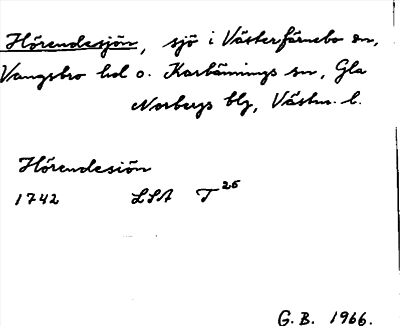 Hörendesjön, sjö i Västerfärnebo sn,
Vangsbro hd o. Karbennings sn, Gla
Norbergs blg, Västm. l.
Hörendesiön
1742 LSA T 26
G. B. 1966.